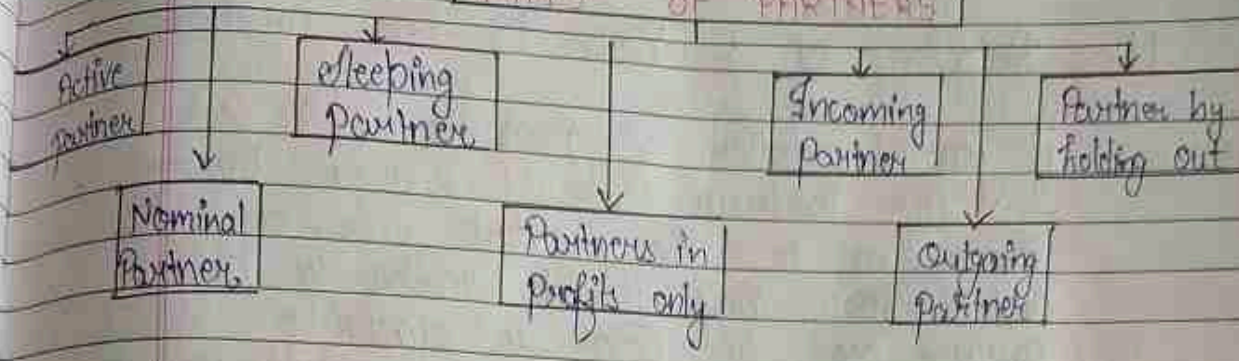 OF PARTNERS
Active
partner
Sleeping
Partner
Incoming
Partner
Partner by
holding out
Nominal
Partner.
Partners in
Profits only
Outgoing
partner